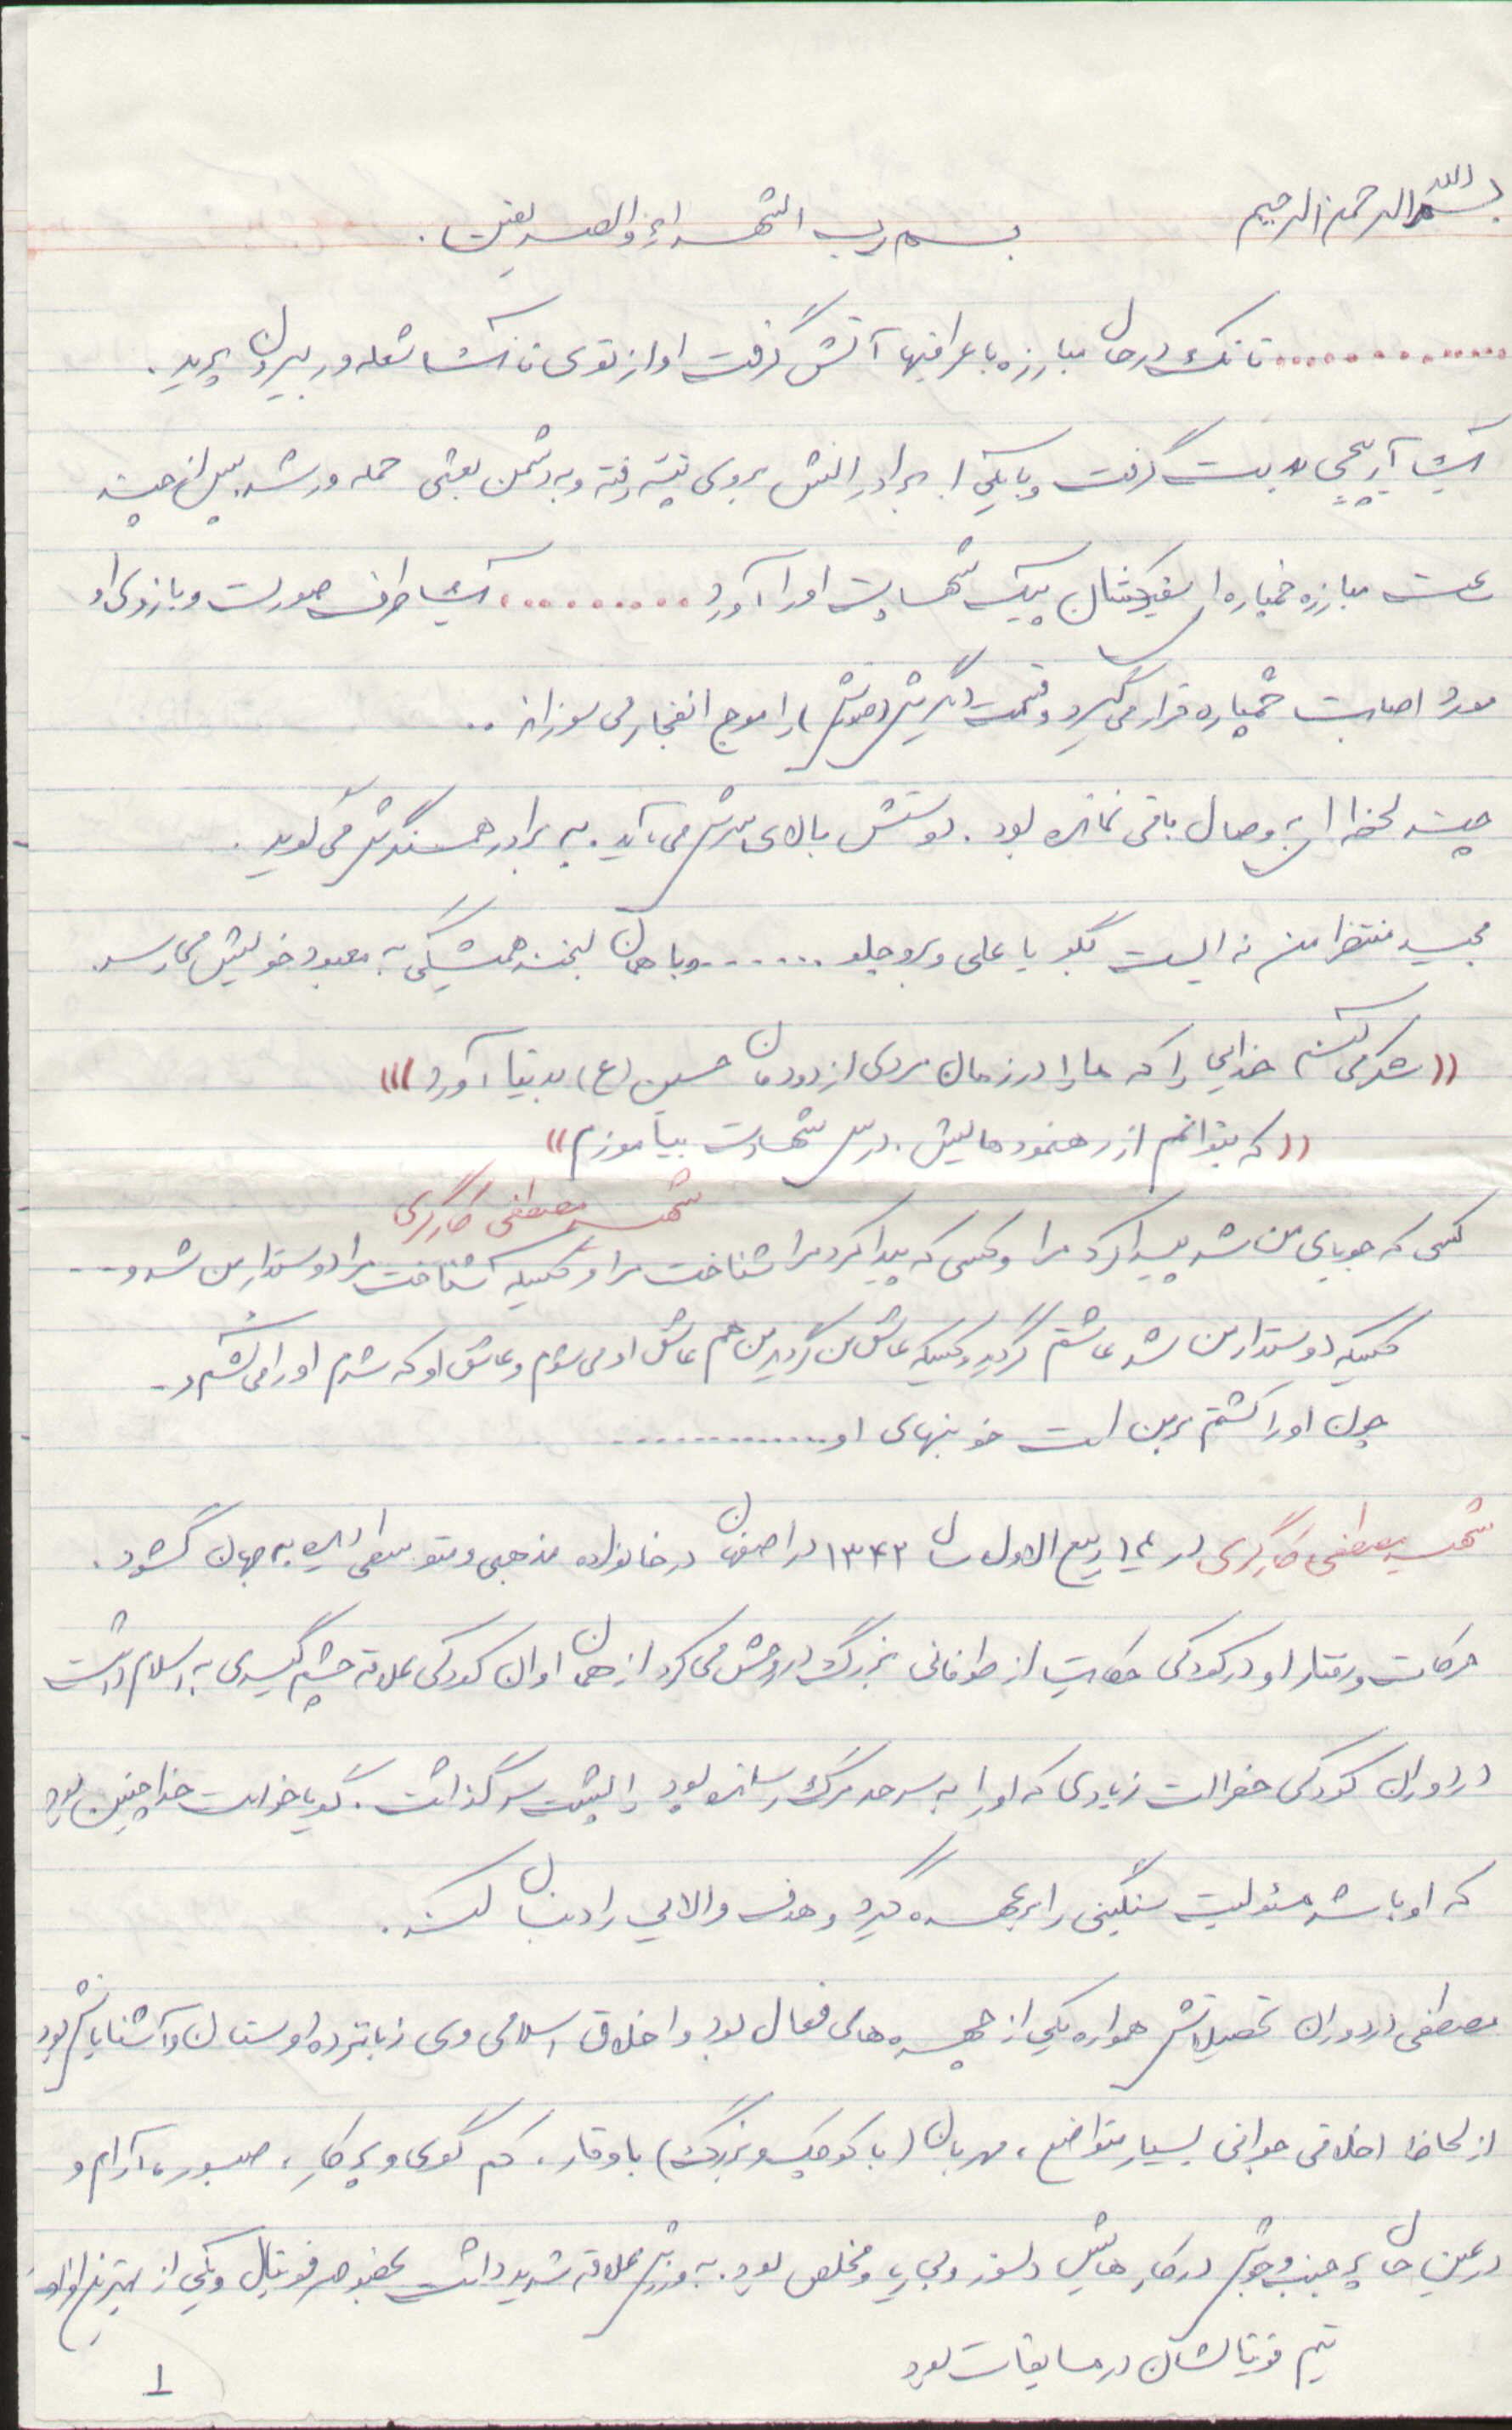 بسم الله الرحمن الرحیم
بسم رب الشهداء والصدیقین .
.............. تانک در حال مبارزه با عراقیها آتش گرفت او از توی تانک شعله ور بیرون پرید .
یک آرپیجی بدست گرفت و با یکی از برادرانش بروی تپه رفته و به دشمن بعثی حمله ور شد پس از چند
ساعت مبارزه خمپاره ای پیک شهادت او را آورد .......... یک طرف صورت و بازوی او
مورد اصابت خمپاره قرار می گیرد و قسمت دیگرش (صورتش) را موج انفجار می سوزاند ..
چند لحظه ای به وصال باقی نمانده بود . دوستش بالای سرش می آید . به برادر همسنگرش می گوید .
مجید منتظر من نه ایست بگو یا علی و برو جلو ....... و با همان لبخند همیشگی به معبود خویش می رسد
((شکر می کنم خدایی را که ما را در زمان مردی از دودمان حسین (ع) بدنیا آورد)))
((که بتوانم از رهنمودهایش . درس شهادت بیآموزم))
شهید مصطفی کارگری
کسی که جویای من شد پیدا کرد مرا و کسی که پیدا کرد مرا شناخت مرا و کسیکه شناخت مرا دوستدار من شد و --
کسیکه دوستدار من شد عاشقم گردید و کسیکه عاشق من گردید من هم عاشق او می شوم و عاشق او که شدم او را می کشم و -
چون او را کشتم بر من است خونبهای او ..............
شهید مصطفی کارگری در ۱۴ ربیع الاول سال ۱۳۴۳ در اصفهان در خانواده مذهبی و متوسطی دیده به جهان گشود .
حرکات و رفتار او در کودکی حکایت از طوفانی بزرگ در روحش می کرد از همان اوان کودکی علاقه چشم گیری به اسلام داشت
در دوران کودکی خطرات زیادی که او را به سر حد مرگ رسانده بود را پشت سر گذاشت . گویا خواست خدا چنین بود
که او باشد مسئولیت سنگینی را برعهده گیرد و هدف والایی را دنبال کند .
مصطفی در دوران تحصیلاتش همواره یکی از چهره های فعال بود و اخلاق اسلامی وی زبانزد دوستان و آشنایانش بود
از لحاظ اخلاقی جوانی بسیار متواضع ، مهربان (با کوچک و بزرگ) با وقار ، کم گوی و پر کار ، صبور ، آرام و
در عین حال پر جنب و جوش در کارهایش دلسوز و بی ریا و مخلص بود . به ورزش علاقه شدید داشت بخصوص فوتبال و یکی از بهترین افراد
تیم فوتبالشان در مسابقات بود
۱